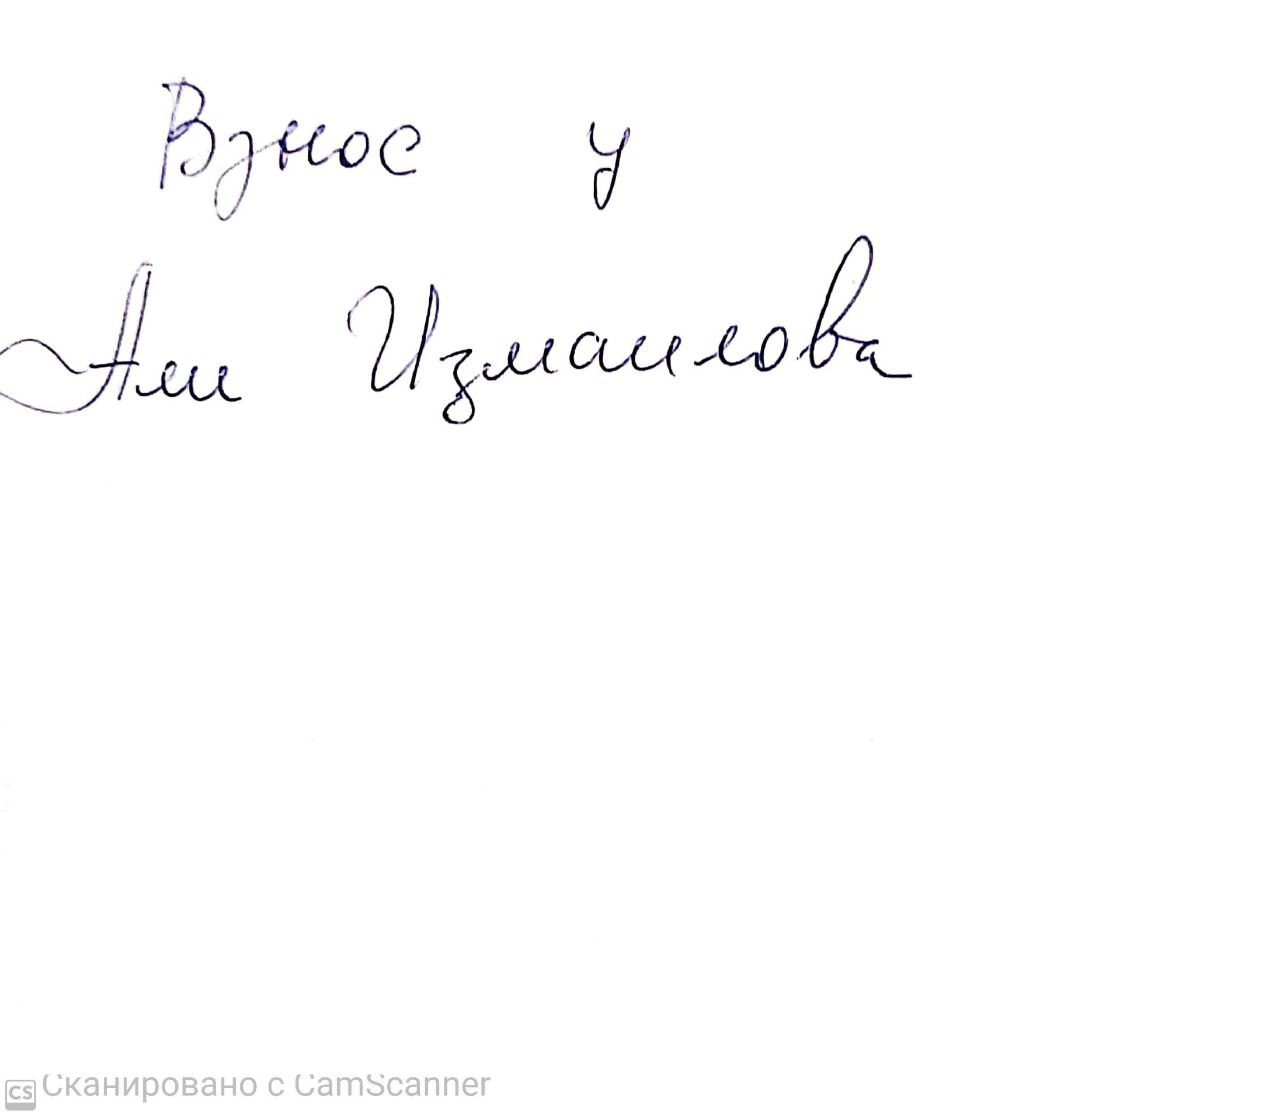 Взнос у
Али Измаилова
Сканировано с CamScanner